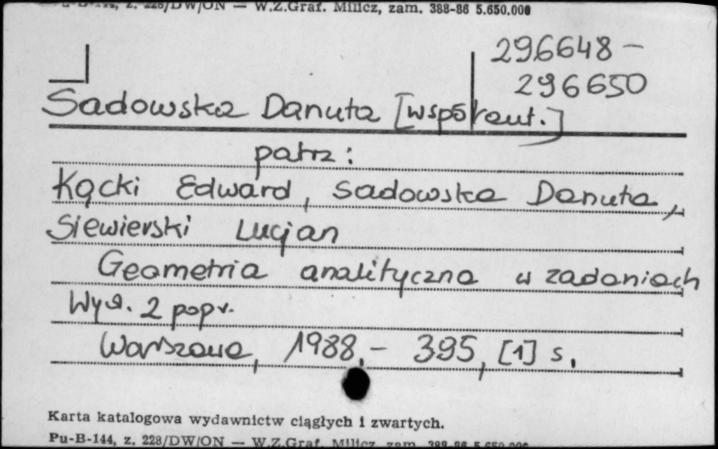 Pu-B-144, z. 228/DW/ON — W.Z.Graf. Milicz, zam. 388-86 5.650.000
296648 -
296650
Sadowska Danuta [współaut.]
patrz:
Kącki Edward, Sadowska Danuta,
Siewierski Lucjan
Geometria analityczna w zadaniach
Wyd. 2 popr.
Warszawa, 1988.- 395, [1] s.
Karta katalogowa wydawnictw ciągłych i zwartych.
Pu-B-144, z. 228/DW/ON — W.Z.Graf. Milicz zam. 388-86 5.650.000